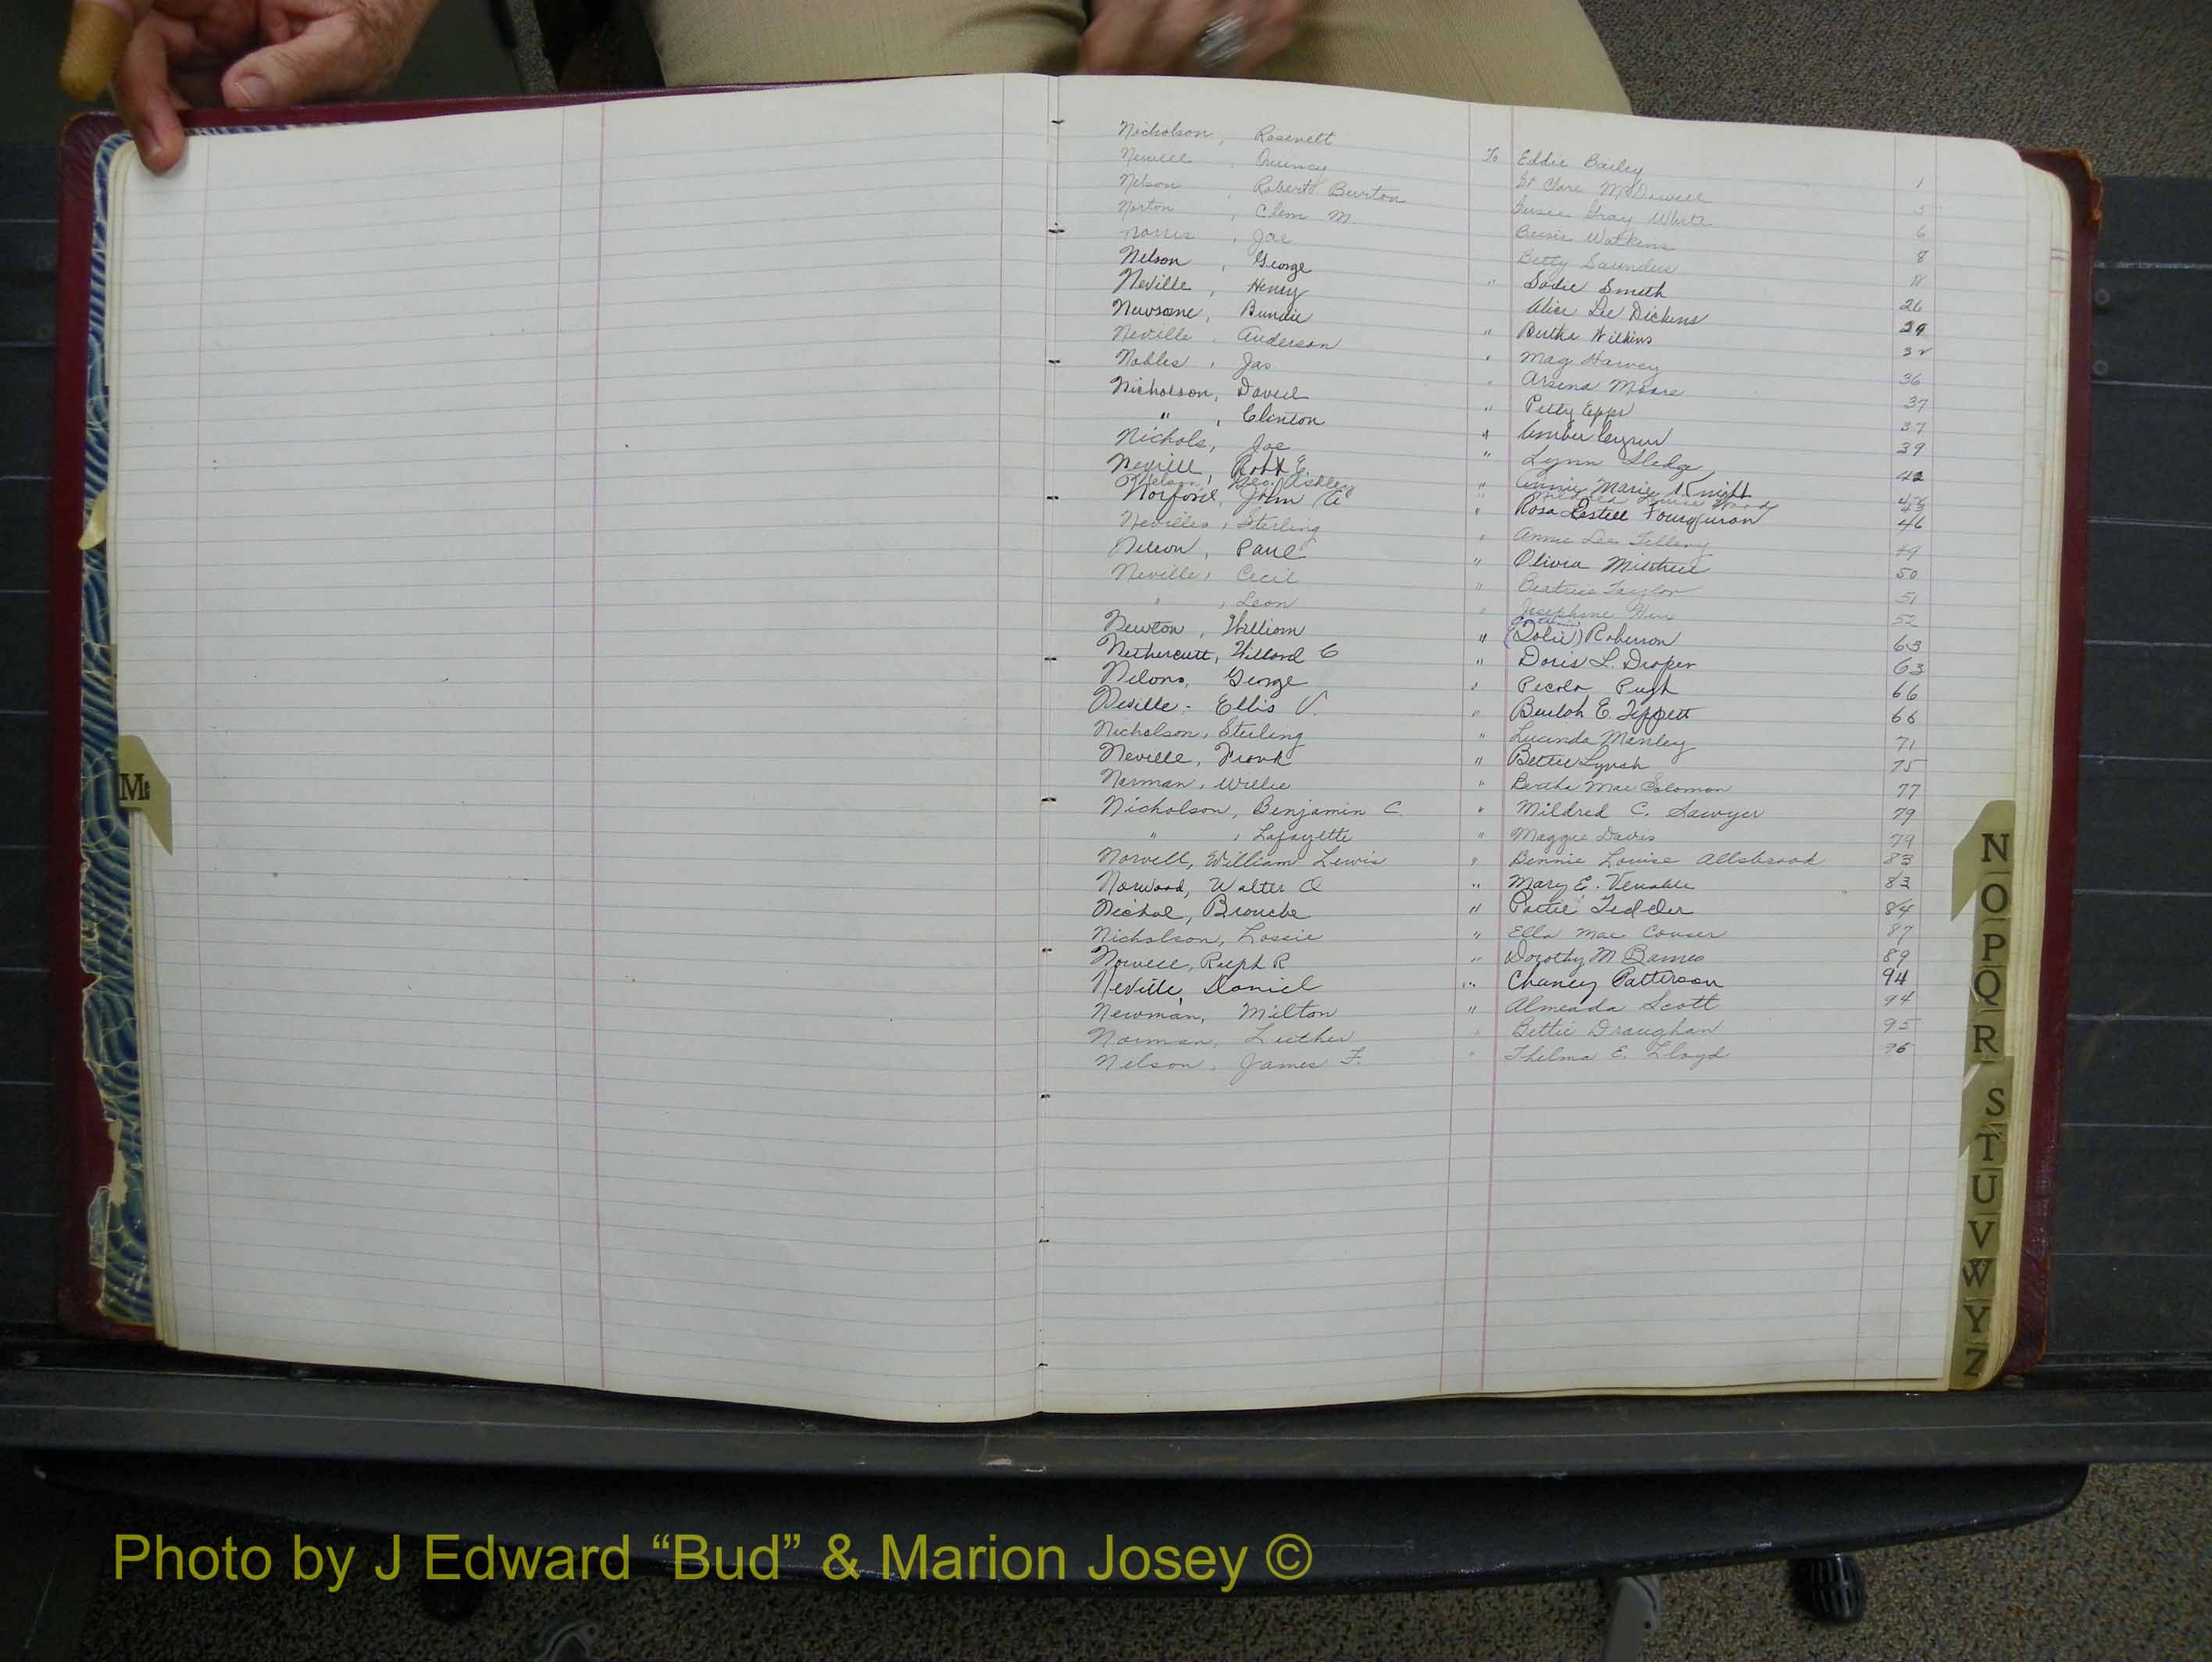 Nicholson, Rosevelt To Eddie Bailey 1
Newell, Quincy St Clare McDowell 5
Nelson, Roberts Burton Susie Gray White 6
Norton, Clem M. Bessie Watkins 8
Norris, Joe Betty Saunders 11
Nelson, George " Sadie Smith
Neville, Henry Alice Lee Dickens 26
Newsome, Bunnie " Bertha Wilkins 29
Neville, Anderson " Mag Harvey 32
Nobles, Jas " Arsena Moore 36
Nicholson, David " Petty Epps 37
" , Clinton " 37
Nichols, Joe " Lynn Sledge 39
Nevill, Robt E. " Annie Marie Knight 42
Nelson, Geo. Ashley " Mildred Louise Woody 45
Norford, John A " Rosa Estell Fourquran 46
Nevilles, Sterling " Annie Lee Tillery 49
Nelson, Paul " Olivia 50
Neville, Cecil " Beatrice Taylor 51
" , Leon " Josephine 52
Newton, William " (Dolie) Roberson 63
Nethercutt, Willard C " Doris L. Draper 63
Nelons, George " Pecola Pugh 66
Neville, Ellis V. " Beulah E. Tippett 66
Nicholson, Sterling " Lucinda Manley 71
Neville, Frank " Bettie Lynch 75
Norman, Willie " Bertha Mae Solomon 77
Nicholson, Benjamin C. " Mildred C. Sawyer 79
" , Lafayette " Maggie Davis 79
Norvell, William Lewis " Bennie Louise Allsbrook 83
Norwood, Walter O " Mary E. Venable 83
Nichol, Blouche " Pattie Tedder 84
Nicholson, Lossie " Ella Mae Couser 87
Nowell, Ralph R " Dorothy M Barnes 89
Neville, Daniel " Chaney Patterson 94
Newman, Milton " Almeada Scott 94
Norman, Luther " Bettie Draughan 95
Nelson, James F. " Thelma E. Lloyd 96
Mc
N
O
P
Q
R
S
T
U
V
W
Y
Z
Photo by J Edward “Bud” & Marion Josey ©